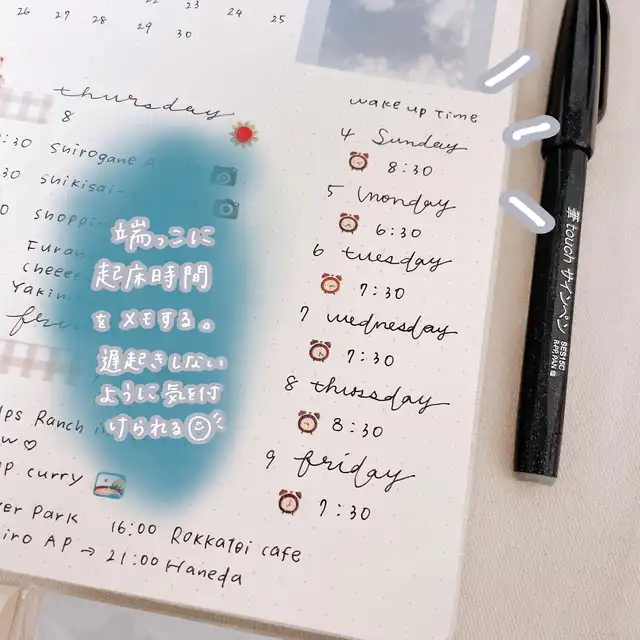 26 27 28 22 23 24 25
29 30
thursday
8
:30 Shirogane A
30 Shikisai-
0 shoppin
Furan
cheese
Yakin
fri
lps Ranch in
w♡
P curry
er Park 16:00 Rokkatei cafe
iro AP → 21:00 Haneda
端っこに
起床時間
をメモする。
遅起きしない
ように気を付
けられる
wake up time
4 Sunday
8:30
5 monday
6:30
6 tuesday
7:30
7 wednesday
7:30
8 thursday
8:30
9 friday
7:30
筆touch サインペン
SES15C